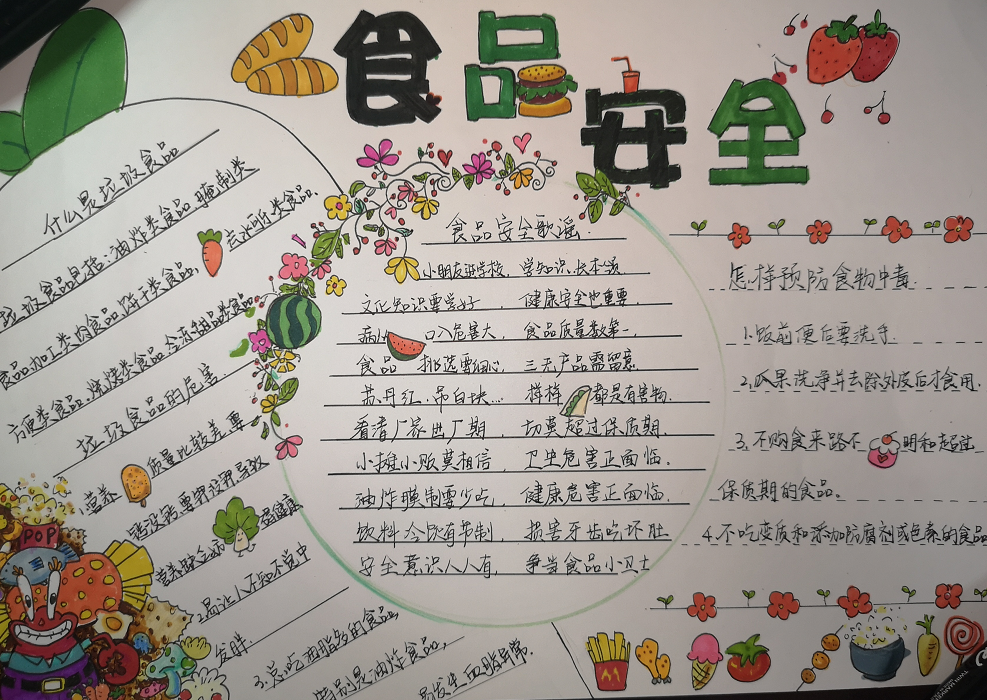 食品
安全
什么是垃圾食品
垃圾食品包括：油炸类食品、腌制类
食品、加工类肉食品、饼干类食品、
方便类食品、烧烤类食品、冷冻甜品类食品
垃圾食品的危害
营养 质量比较差，要
营养缺乏
2.易让人不知不觉中
发胖.
3.总吃油脂多的食品，
特别是油炸食品，
易发生血脂异常.
食品安全歌谣
小朋友进学校，学知识，长本领
文化知识要学好，健康安全也重要.
病从口入危害大，食品质量数第一，
食品 挑选要细心，三无产品需留意
苏丹红、吊白块... 样样都是有害物.
看清厂家出厂期，切莫超过保质期.
小摊小贩莫相信，卫生危害正面临.
油炸腌制要少吃，健康危害正面临.
饮料冷饮有节制，损害牙齿吃坏肚
安全意识人人有，争当食品小卫士
怎样预防食物中毒.
1.饭前便后要洗手.
2.瓜果洗净并去除外皮后才食用.
3.不购食来路不 明和超过
保质期的食品。
4.不吃变质和添加防腐剂或色素的食品
POP